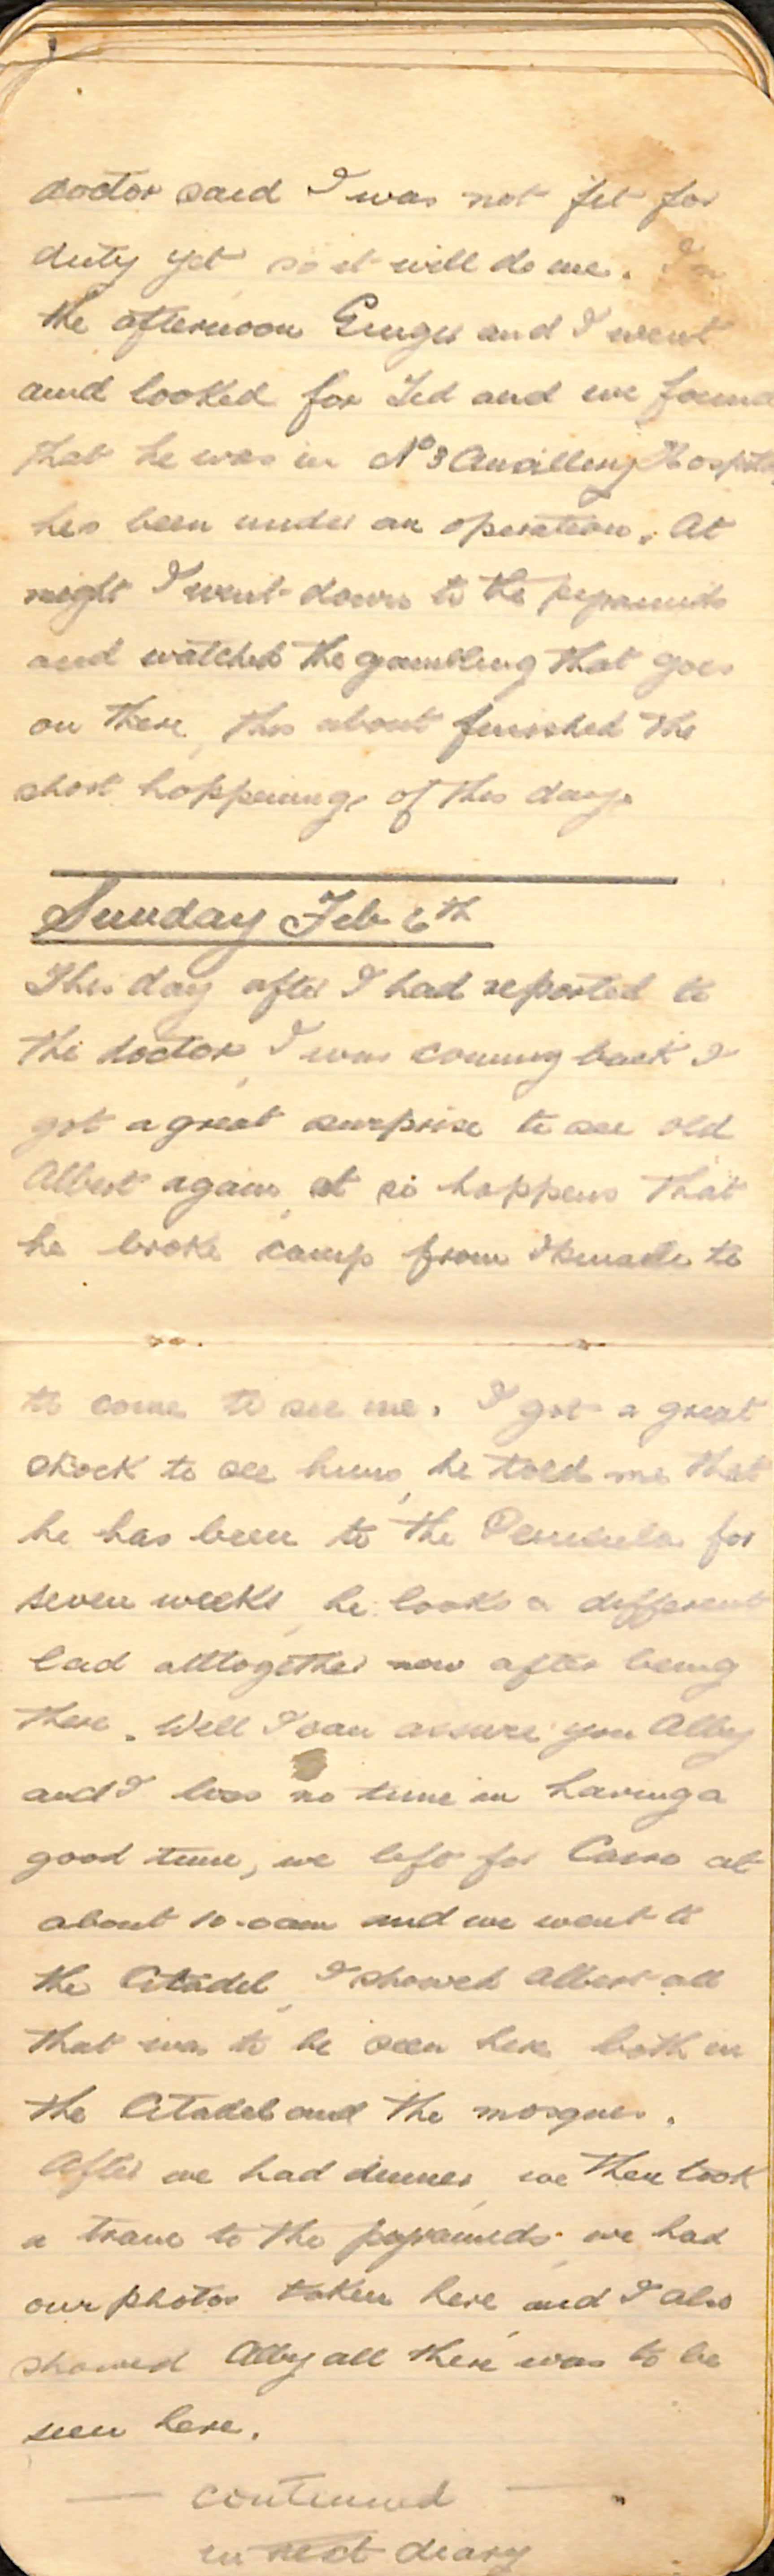 doctor said I was not fit for
duty yet so it will do me. In
the afternoon Ginger and I went
and looked for Ted and we found
that he was in No 3 Auxillery Hospital
hes been under an operation. At
night I went down to the pyramids
and watched the gambling that goes
on there, this about finished the
short happenings of this day.
Sunday Feb 6th
This day after I had reported to
the doctor, I was coming back I
got a great surprise to see old
Albert again, it so happens that
he broke camp from to
to come to see me. I got a great
shock to see him, he told me that
he has been to the Penisula for
seven weeks, he looks a different
lad alltogether now after being
there. Well I can assure you Alby
and I loss no time in having a
good time, we left for Cairo at
about 10.0am and we went to
the Citadel, I showed Albert all
that was to be seen here both in
the Citadel and the mosques.
After we had dinner, we then took
a tram to the pyramids, we had
our photos taken here, and I also
showed Alby all there was to be
seen here.
— continued —
in next diary